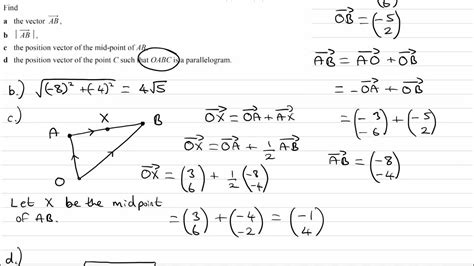 Find
a the vector →AB,
b |→AB|,
c the position vector of the mid-point of AB,
d the position vector of the point C such that OABC is a parallelogram.
6)
→OB = (-5
2)
→AB = →AO + →OB
= -→OA + →OB
= (-3
-6) + (-5
2)
→AB = (-8
-4)
b.) √(-8)² + (-4)² = 4√5
c.)
X
B
A
O
→OX = →OA + →AX
→OX = →OA + 1/2 →AB
→OX = (3
6) + 1/2 (-8
-4)
Let X be the midpoint
of AB.
= (3
6) + (-4
-2) = (-1
4)
d.)